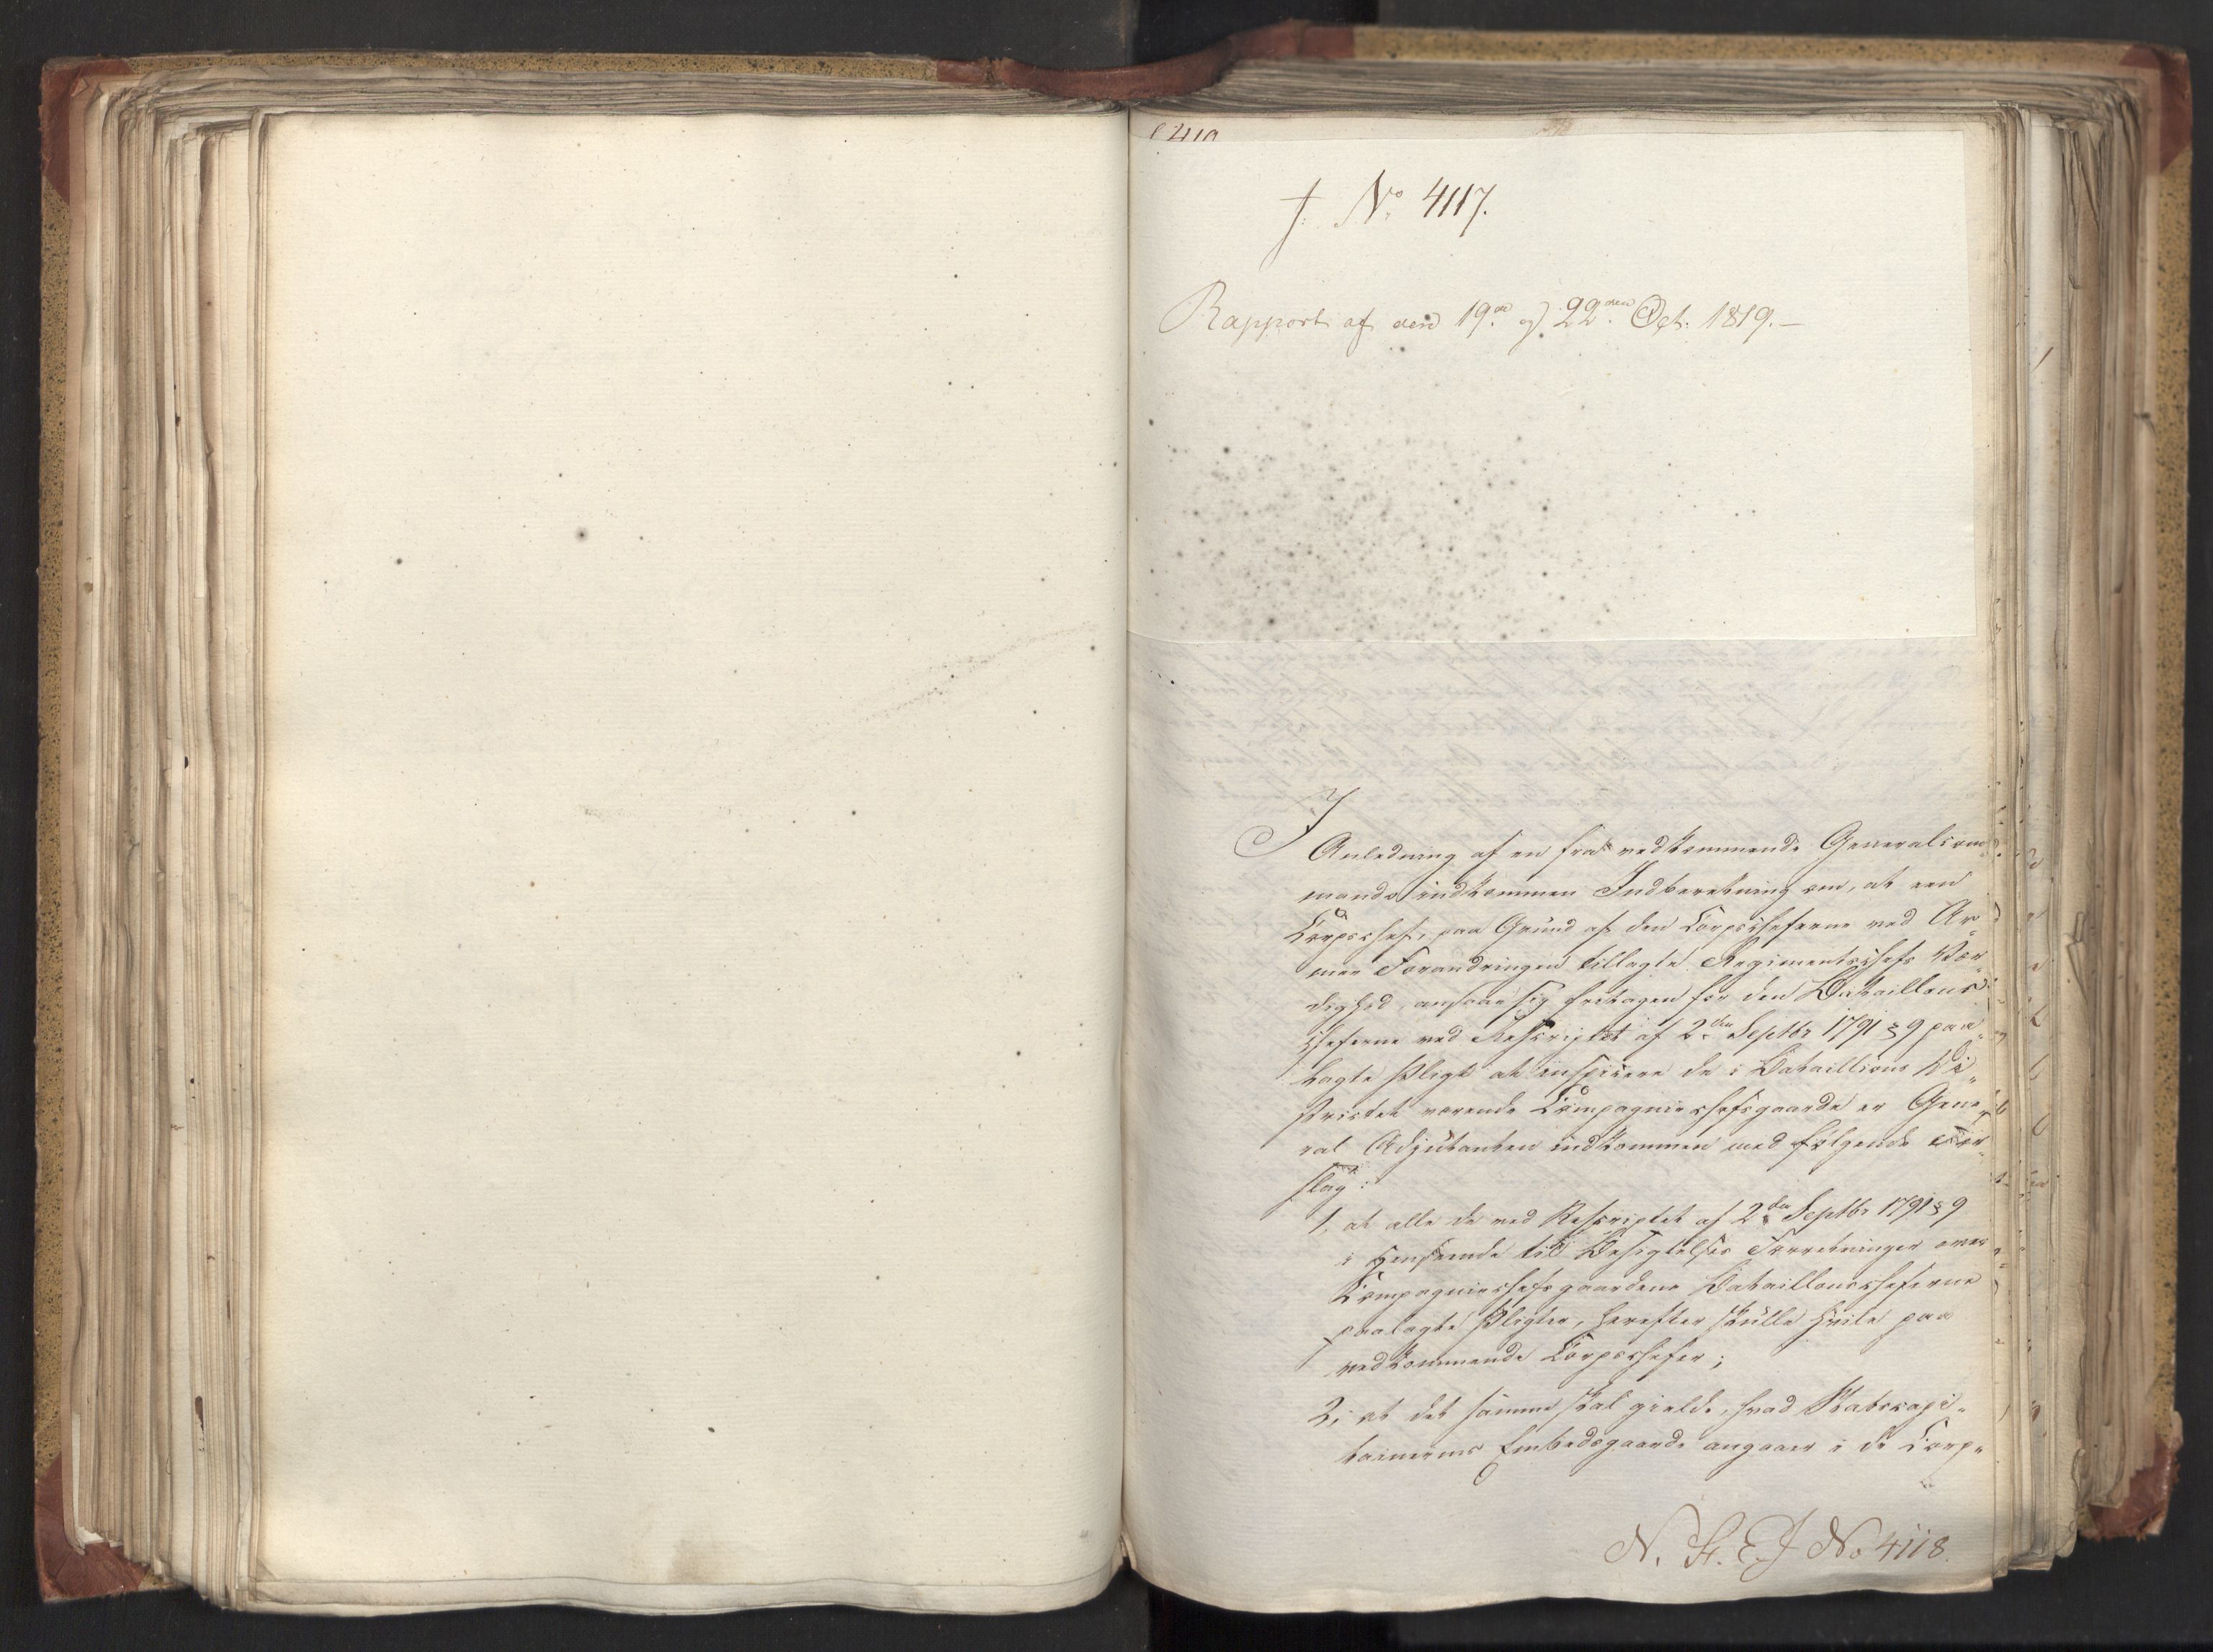 J. No 4117.
Rapport af den 19de og 22den Oct. 1819. —
I
Anledning af en fra vedkommende Generalcom„
mando indkommen Indberetning om, at een
Corpschef, paa Grund af den Corpscheferne ved Ar„
mee Forandringen tillagte Regimentschefs Vær„
dighed, ansaae sig fritagen for den Bataillons„
cheferne ved Rescriptet af 2den Septbr 1791 § 9 paa„
lagte Pligt at inspicere de i Bataillions Di„
strictet værende Compagniechefsgaarde er Gene„
ral Adjutanten indkommen med følgende For„
slag:
1, at alle de ved Rescriptet af 2den Septbr 1791 § 9
i Henseende til Besigtelses Forretninger over
Compagniechefsgaardene Bataillonscheferne
paalagte Pligter, herefter skulle hvile paa
vedkommende Corpschefer;
2, at det samme skal gielde, hvad Statscapi„
tainernes Embedsgaarde angaaer i de Corp„
N. St. E. J No 4118.